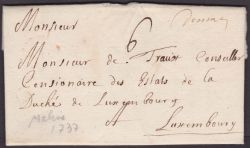 Monsieur
Monsieur de Traux Conseiller
Pensionaire des Estats de la
Duché de Luxembourg
A Luxembourg
6
1737